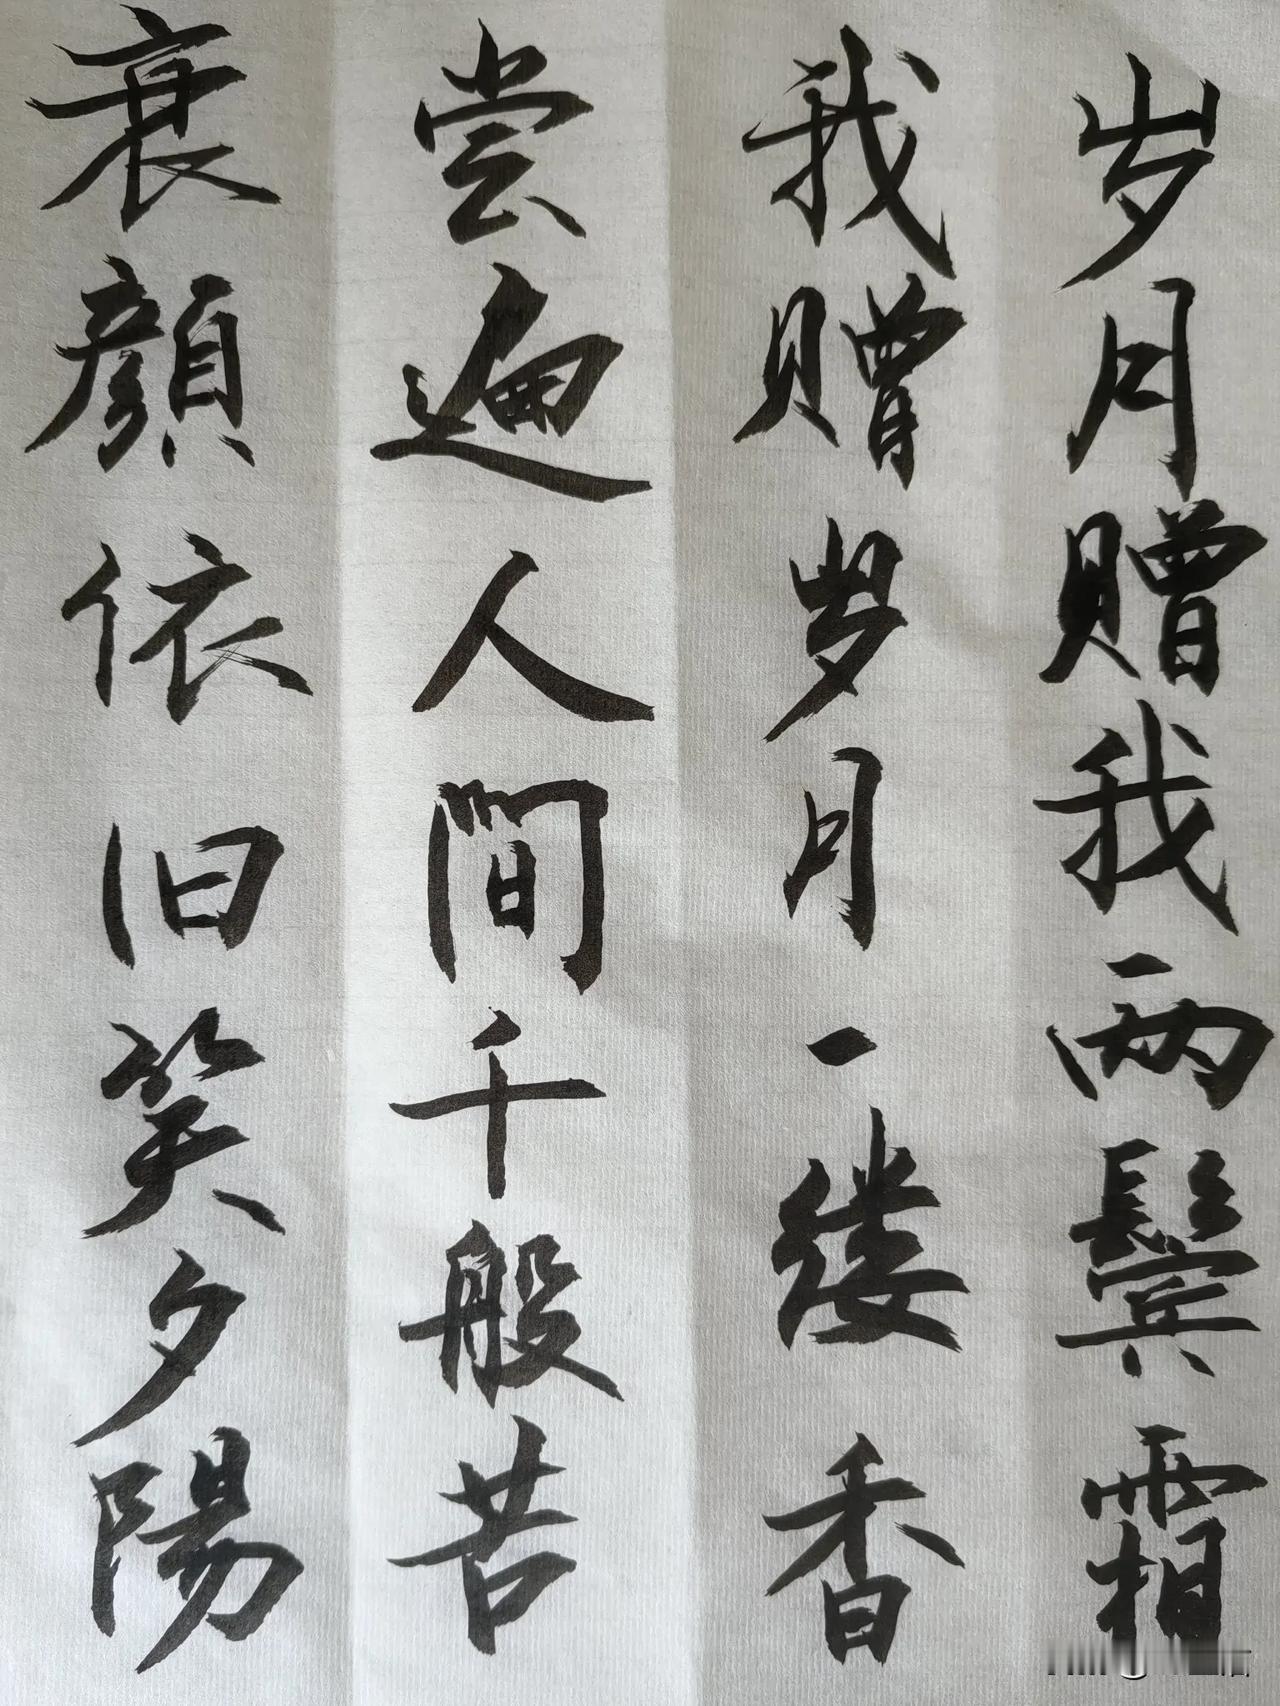 岁月赠我两鬓霜
我赠岁月一缕香
尝遍人間千般苦
衰顔依旧笑夕陽